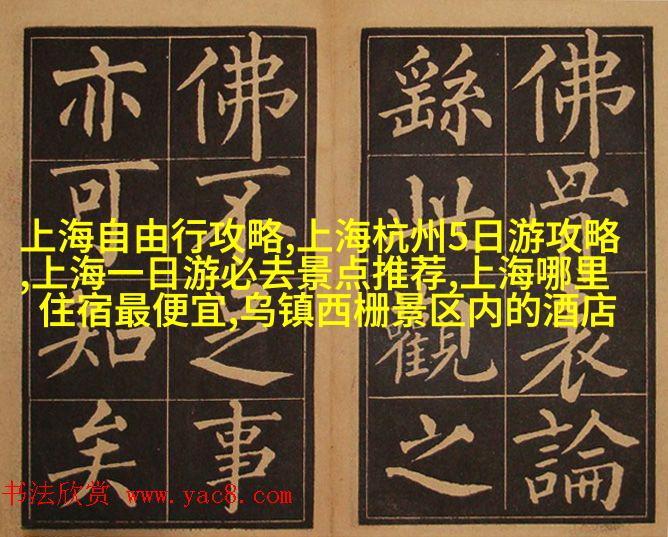 佛骨表論
繇此觀之
佛不足事
亦可知矣
上海自由行攻略,上海杭州5日游攻略
,上海一日游必去景点推荐,上海哪里
住宿最便宜,乌镇西栅景区内的酒店
书法欣赏 www.yac8.com